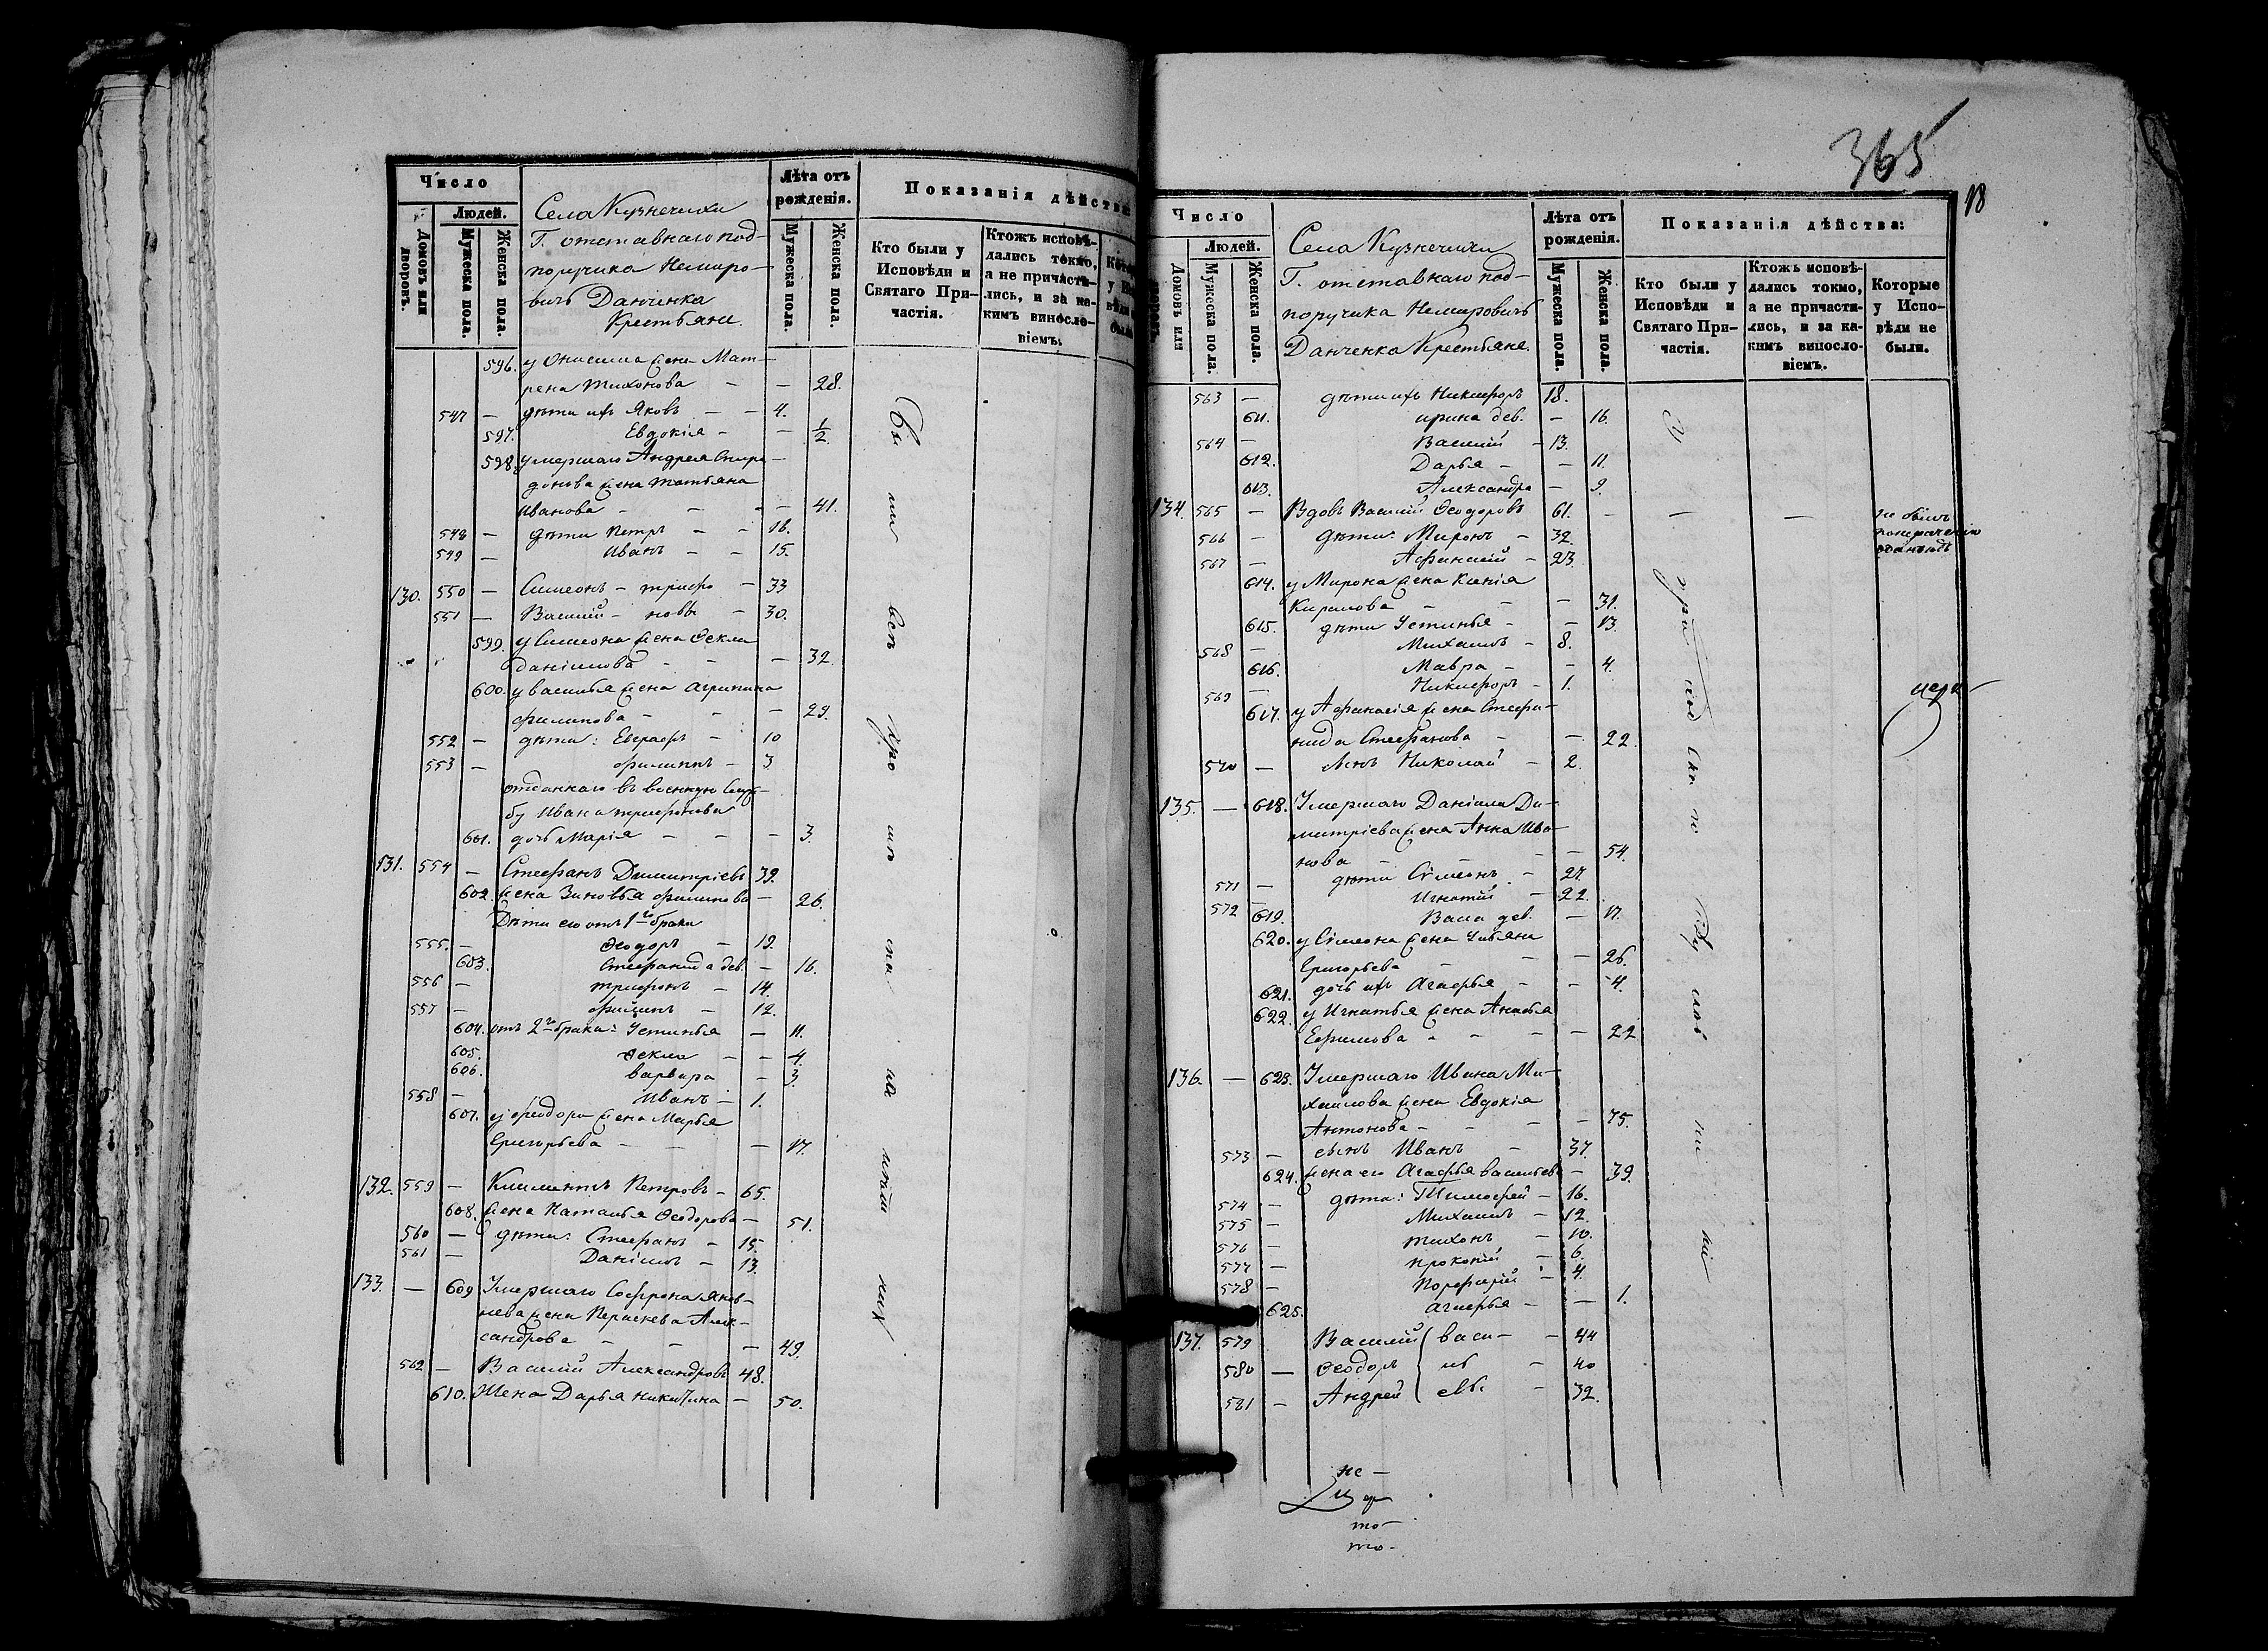 Число
Лѣта отъ рожденія.
Показанія дѣйства
Людей.
Домовъ или дворовъ.
Мужеска пола.
Женска пола.
Села Кузнечихи
Г. отставнаго под-
поручика Немиро-
вичъ Данченка
Крестьяне.
Мужеска пола.
Женска пола.
Кто были у Исповѣди и Святаго При-частія.
Ктожъ исповѣ-дались токмо, а не причасти-лись, и за ка-кимъ виносло-віемъ.
596. у Онисима жена Мат-
рена Тихонова - - 28.
547 - дѣти ихъ Яковъ - - 4.
597. Евдокія - - 1/2.
598. умершаго Андрея Спири-
донова жена Татьяна
Иванова - - - - 41.
548 - дѣти Петръ - - 16.
549 - Иванъ - - 15.
130. 550 - Симеонъ - трифо - 33
551 - Василій - новы - 30.
599. у Симеона жена Ѳекла
Даніилова - - - 32.
600. у Василья жена Агрипина
Филипова - - - 29.
552 - дѣти: Евграфъ - 10
553 - Филиппъ - 3
отданнаго въ военную служ-
бу Ивана Трифонова
601. дочь Марія - - - 3.
131. 554 - Стефанъ Димитріевъ 39.
602. жена Зиновья Филипова - 26.
Дѣти его отъ 1го брака
555. - Ѳеодоръ - 19.
603. Стефанида дев. - 16.
556 - Трифонъ - 14.
557 - Филипъ - 12.
604. отъ 2го брака: Устинья - 11.
605. Ѳекла - - 4.
606. Варвара - 3.
558 - Иванъ - 1.
607. у Ѳеодора жена Марья
Григорьева - - - 17.
132. 559 - Климентъ Петровъ - 65.
608. жена Наталья Ѳеодорова - 51.
560 - дѣти: Стефанъ - 15.
561 - Даніилъ - 13.
133. - 609 Умершаго Софрона Яков-
лева жена Параскева Алек-
сандрова - - - 49.
562 - Василій Александровъ 48.
610. Жена Дарья Никитина - 50.
365
18
Число
Лѣта отъ рожденія.
Показанія дѣйства:
Людей.
Домовъ или
Мужеска пола.
Женска пола.
Села Кузнечихи
Г. отставнаго под-
поручика Немировичъ
Данченка Крестьяне.
Мужеска пола.
Женска пола.
Кто были у Исповѣди и Святаго При-частія.
Ктожъ исповѣ-дались токмо, а не причасти-лись, и за ка-кимъ виносло-віемъ.
Которые у Испо-вѣди не были.
563 - дѣти ихъ Никифоръ 18.
611. Ирина дев. - 16.
564 - Василій - 13.
612. Дарья - - 11.
613. Александра - 9.
134. 565 - Вдовъ Василій Ѳеодоровъ 61. - - - не былъ
566 - дѣти: Миронъ - 32.
567 - Афанасій - 23.
614. у Мирона жена Ксенія
Кирилова - - - 31.
615. дѣти Устинья - - 13.
568 - Михаилъ - 8.
616. Мавра - - 4.
569 - Никифоръ - 1.
617. у Афанасія жена Стефа-
нида Стефанова - - 22.
570 - сынъ Николай - 2.
135. - 618. Умершаго Даніила Ди-
митріева жена Анна Ива-
нова - - - - 54.
571 - дѣти Симеонъ - 27.
572 - Игнатій - 22.
619. Васса дев. - 17.
620. у Симеона жена Ульяна
Григорьева - - - 26.
621. дочь ихъ Агафья - - 4.
622. у Игнатья жена
Ефимова - - - - 22
136. - 623. Умершаго Ивана Ми-
хаилова жена Евдокія
Антонова - - - - 75.
573 - сынъ Иванъ - 37.
624. жена его Агафья Васильев - 39.
574 - дѣти: Тимофей - 16.
575 - Михаилъ - 12.
576 - Тихонъ - 10.
577 - Прокопій - 6.
578 - Порфирій - 4.
625. Агафья - - 1.
137. 579 Василій ( васи- - 44
580 - Ѳеодоръ ( ль - 40
581 - Андрей ( евы. - 32.